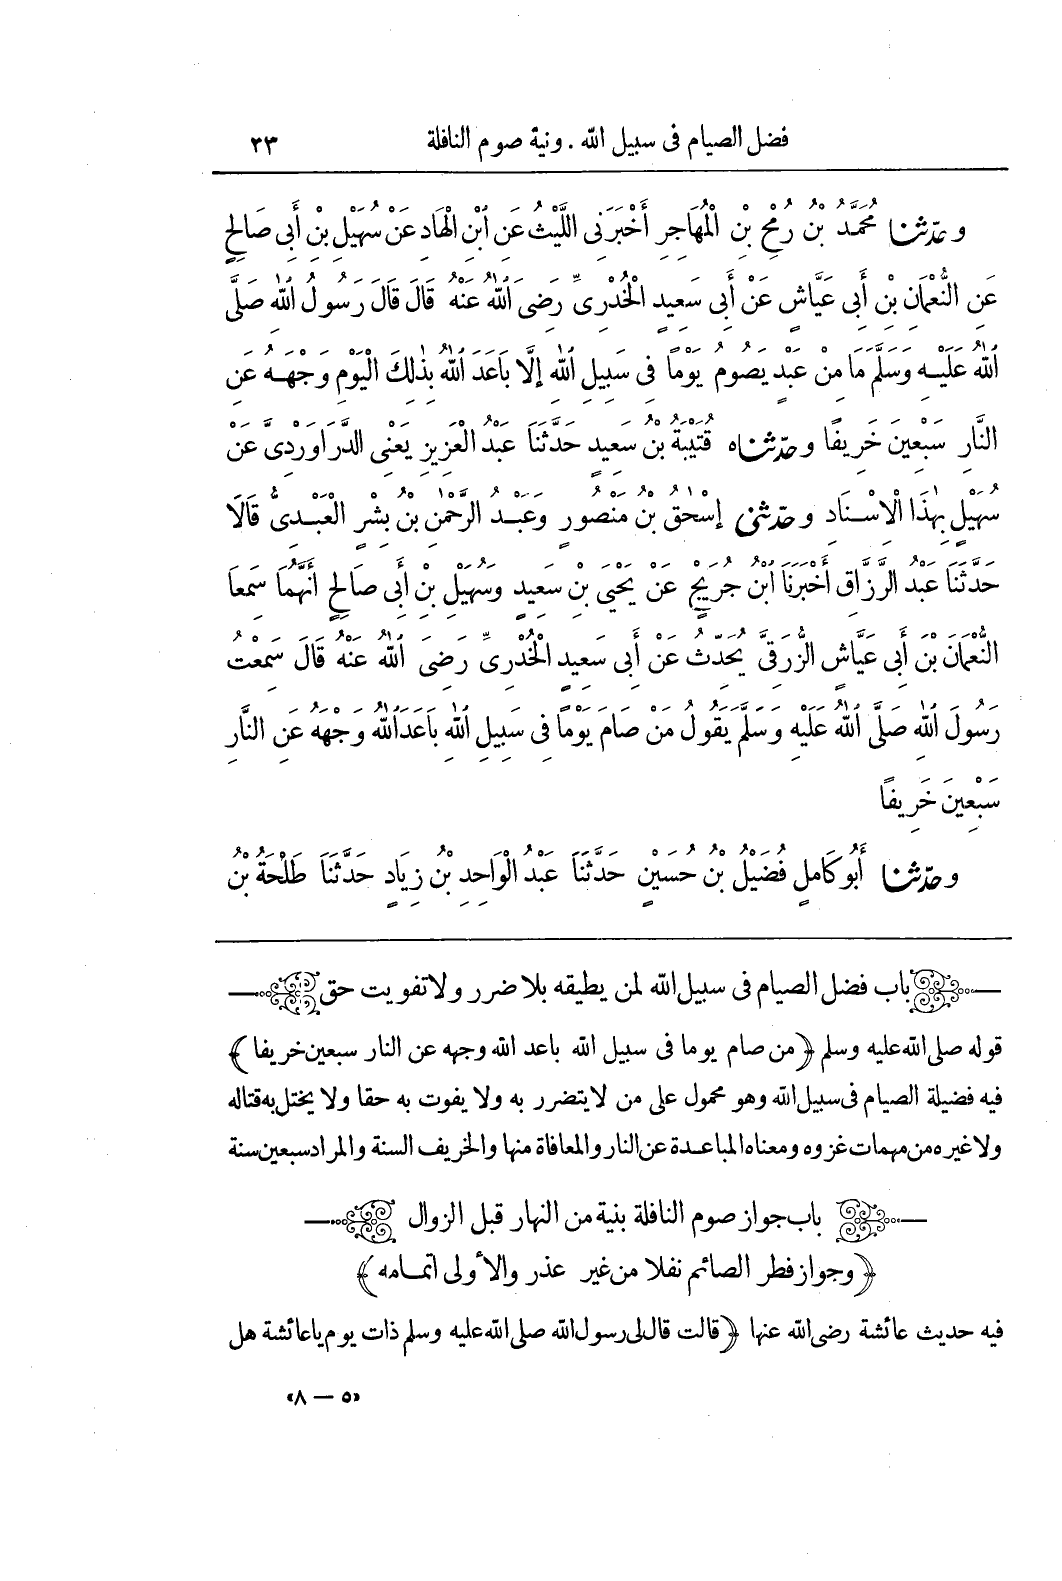 فضل الصيام فى سبيل الله . ونية صوم النافلة ٣٣
و حَدَّثَنَا مُحَمَّدُ بْنُ رُمْحِ بْنِ الْمُهَاجِرِ أَخْبَرَنِى اللَّيْثُ عَنِ ابْنِ الْهَادِ عَنْ سُهَيْلِ بْنِ أَبِى صَالِحٍ
عَنِ النُّعْمَانِ بْنِ أَبِى عَيَّاشٍ عَنْ أَبِى سَعِيدٍ الْخُدْرِىِّ رَضِىَ اللهُ عَنْهُ قَالَ قَالَ رَسُولُ اللهِ صَلَّى
اللهُ عَلَيْهِ وَسَلَّمَ مَا مِنْ عَبْدٍ يَصُومُ يَوْمًا فِى سَبِيلِ اللهِ إِلَّا بَاعَدَ اللهُ بِذٰلِكَ الْيَوْمِ وَجْهَهُ عَنِ
النَّارِ سَبْعِينَ خَرِيفًا و حَدَّثَنَاه قُتَيْبَةُ بْنُ سَعِيدٍ حَدَّثَنَا عَبْدُ الْعَزِيزِ يَعْنِى الدَّرَاوَرْدِىَّ عَنْ
سُهَيْلٍ بِهٰذَا الْإِسْنَادِ و حَدَّثَنِى إِسْحٰقُ بْنُ مَنْصُورٍ وَعَبْدُ الرَّحْمٰنِ بْنُ بِشْرٍ الْعَبْدِىُّ قَالَا
حَدَّثَنَا عَبْدُ الرَّزَّاقِ أَخْبَرَنَا ابْنُ جُرَيْجٍ عَنْ يَحْيَى بْنِ سَعِيدٍ وَسُهَيْلِ بْنِ أَبِى صَالِحٍ أَنَّهُمَا سَمِعَا
النُّعْمَانَ بْنَ أَبِى عَيَّاشٍ الزُّرَقِىَّ يُحَدِّثُ عَنْ أَبِى سَعِيدٍ الْخُدْرِىِّ رَضِىَ اللهُ عَنْهُ قَالَ سَمِعْتُ
رَسُولَ اللهِ صَلَّى اللهُ عَلَيْهِ وَسَلَّمَ يَقُولُ مَنْ صَامَ يَوْمًا فِى سَبِيلِ اللهِ بَاعَدَ اللهُ وَجْهَهُ عَنِ النَّارِ
سَبْعِينَ خَرِيفًا
و حَدَّثَنَا أَبُو كَامِلٍ فُضَيْلُ بْنُ حُسَيْنٍ حَدَّثَنَا عَبْدُ الْوَاحِدِ بْنُ زِيَادٍ حَدَّثَنَا طَلْحَةُ بْنُ
باب فضل الصيام فى سبيل الله لمن يطيقه بلا ضرر ولا تفويت حق
قوله صلى الله عليه وسلم ﴿من صام يوما فى سبيل الله باعد الله وجهه عن النار سبعين خريفا﴾
فيه فضيلة الصيام فى سبيل الله وهو محمول على من لا يتضرر به ولا يفوت به حقا ولا يختل به قتاله
ولا غيره من مهمات غزوه ومعناه المباعدة عن النار والمعافاة منها والخريف السنة والمراد سبعين سنة
باب جواز صوم النافلة بنية من النهار قبل الزوال
﴿وجواز فطر الصائم نفلا من غير عذر والأولى اتمامه﴾
فيه حديث عائشة رضى الله عنها ﴿قالت قال لى رسول الله صلى الله عليه وسلم ذات يوم يا عائشة هل
«٥ — ٨»